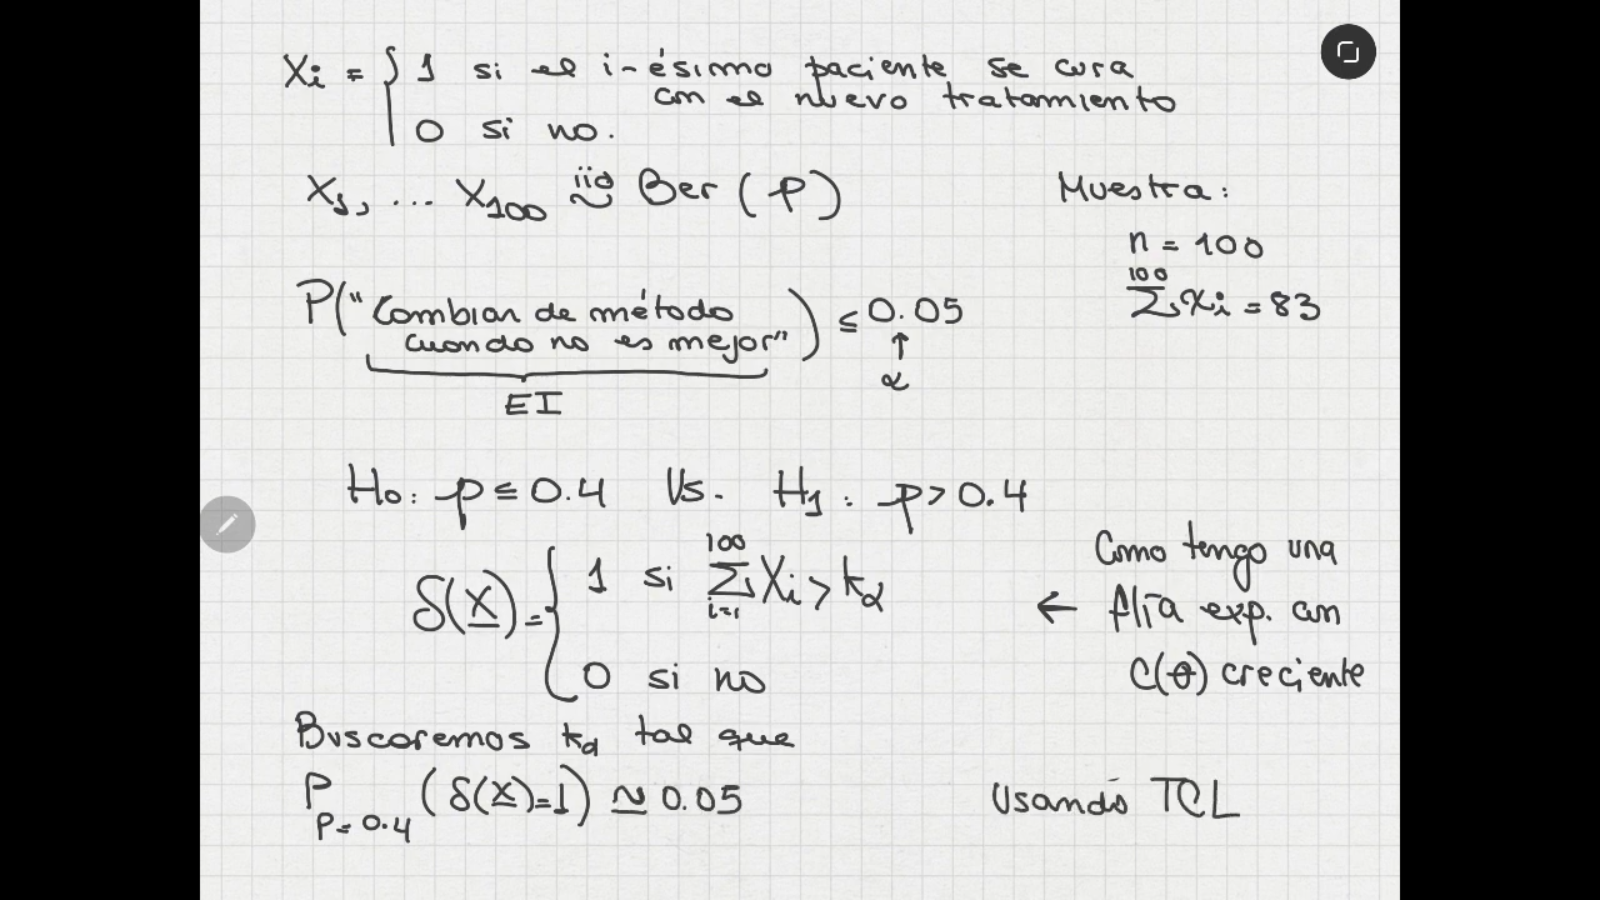 Xi = { 1 si el i-ésimo paciente se cura
con el nuevo tratamiento
0 si no.
X1, ... X100 iid ~ Ber (p)
Muestra:
n = 100
100
Σ xi = 83
P("Cambiar de método
cuando no es mejor") ≤ 0.05
↑
α
EI
H0: p ≤ 0.4 Vs. H1: p > 0.4
δ(X) = { 1 si Σ_{i=1}^{100} Xi > kα
0 si no
← Como tengo una
flia exp. con
C(θ) creciente
Buscaremos kα tal que
P_{p=0.4} (δ(X)=1) ≃ 0.05
Usando TCL